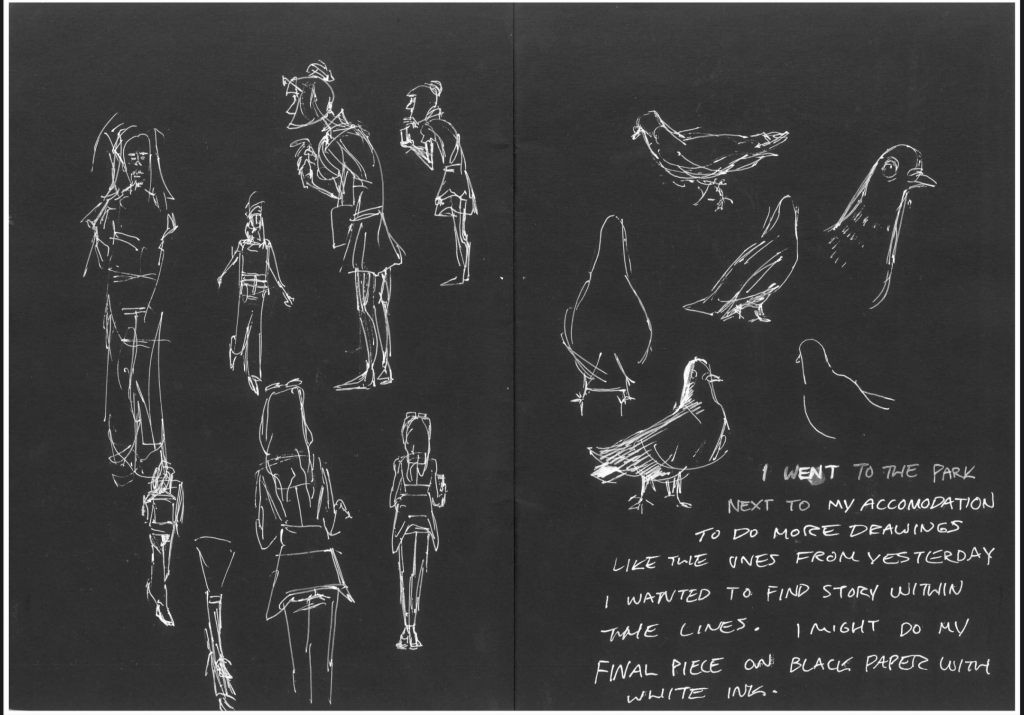 I WENT TO THE PARK
NEXT TO MY ACCOMODATION
TO DO MORE DRAWINGS
LIKE THE ONES FROM YESTERDAY
I WANTED TO FIND STORY WITHIN
THE LINES. I MIGHT DO MY
FINAL PIECE ON BLACK PAPER WITH
WHITE INK.